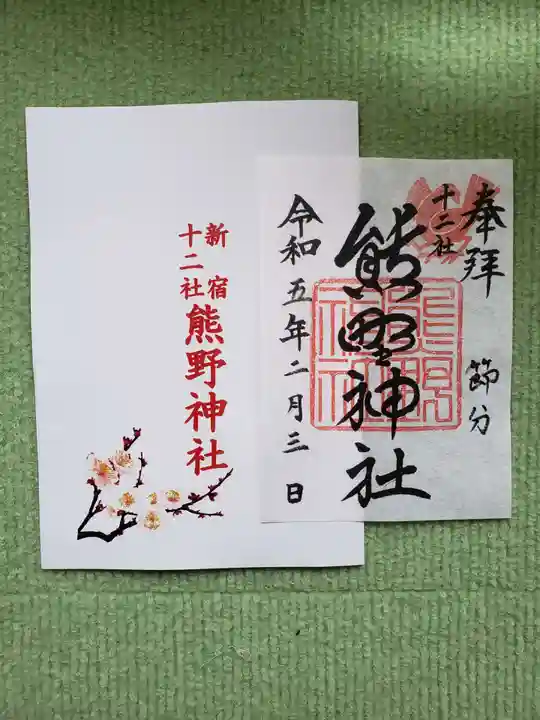 新宿
十二社
熊野神社
奉拝
節分
十二社
熊野神社
令和五年二月三日